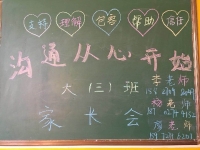 支持 理解 包容 帮助 信任
沟通从心开始
大（三）班
家长会
李老师
杨老师
廖老师